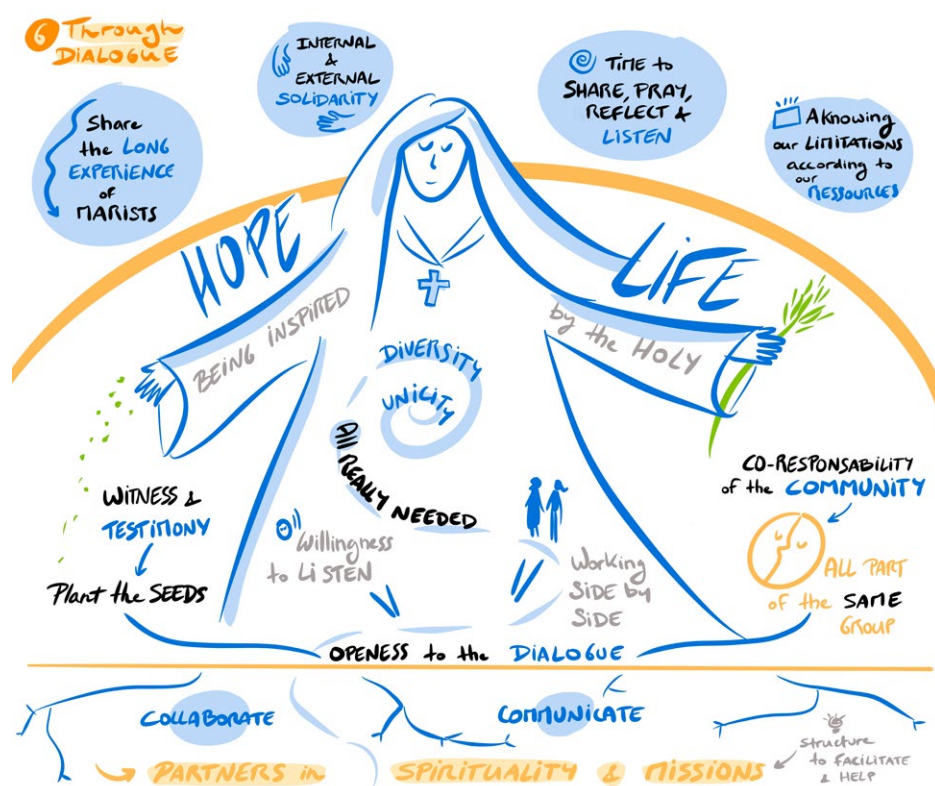 6 Through
DiALOGUE
INTERNAL
&
EXTERNAL
SOLIDARITY
TIME to
SHARE, PRAY,
REFLECT &
LISTEN
Share
the LONG
EXPERIENCE
of
MARISTS
AKnowing
our LIMITATIONS
according to
our
RESSOURCES
HOPE
LiFE
BEING INSPIRED
by the HOLY
DIVERSITY
UNICITY
All REALLY NEEDED
WITNESS &
TESTIMONY
Plant the SEEDS
Willingness
to LiSTEN
Working
SiDE by
SiDE
CO-RESPONSABILITY
of the COMMUNITY
ALL PART
of the SAME
GROUP
OPENESS to the DIALOGUE
COLLABORATE
COMMUNICATE
PARTNERS in SPIRITUALITY & MISSIONS
Structure
to FACILITATE
& HELP